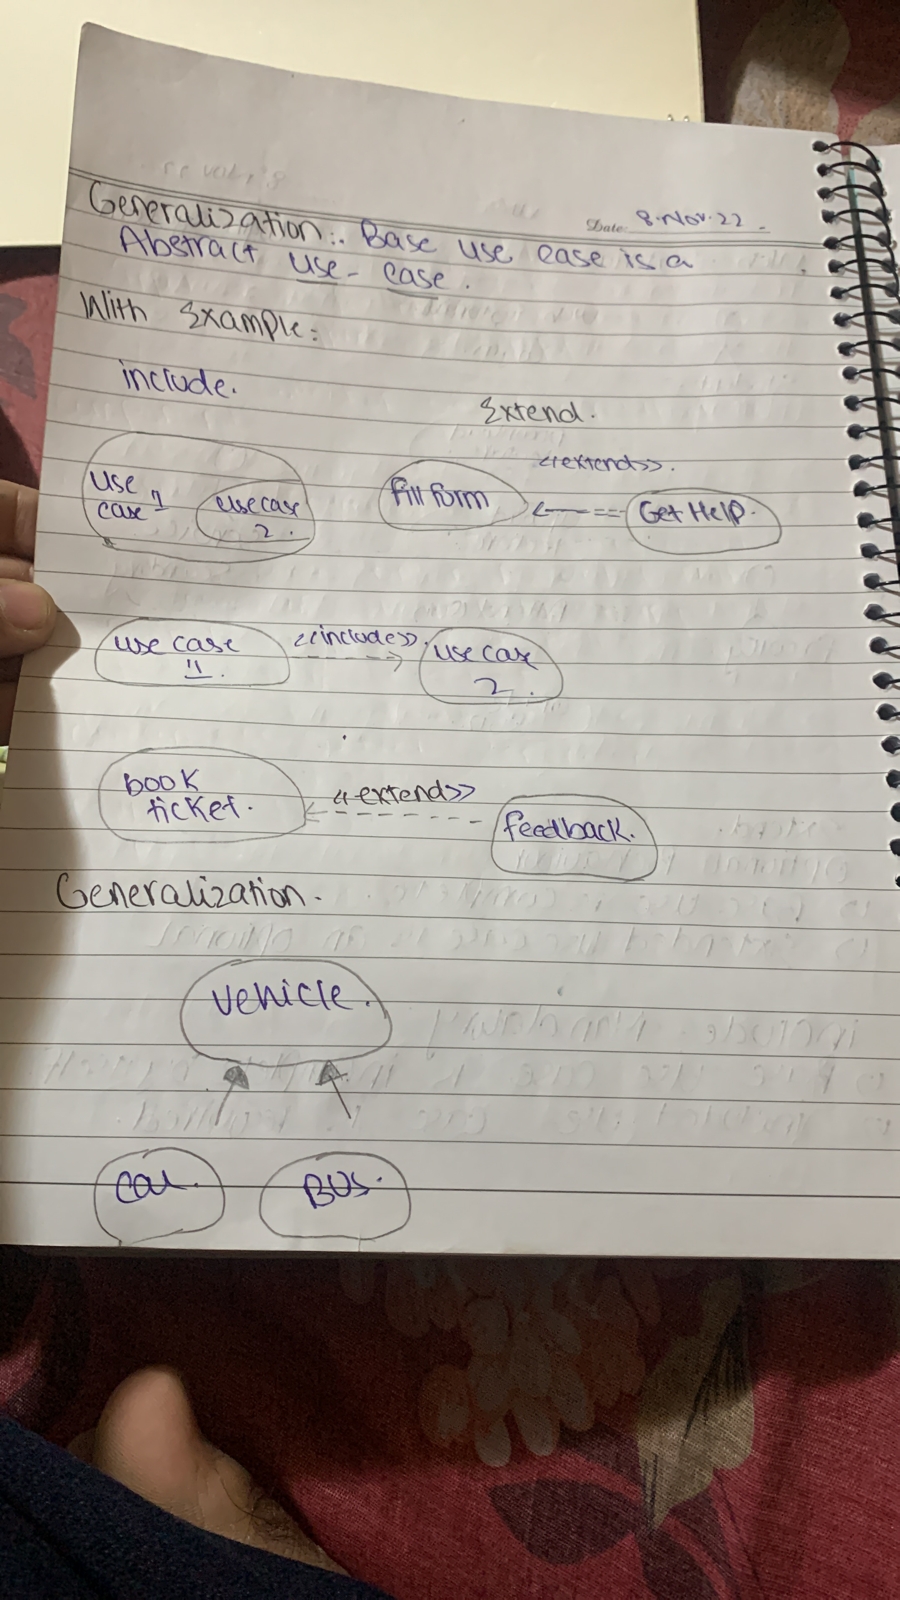 Date: 8.Nov.22
Generalization:. Base use case is a
Abstract use-case.
With Example:
include.
Extend.
<<extend>>.
use case 1
use case 2.
Fill form
Get Help.
use case 1.
<<include>>.
use case 2.
book ticket.
<<extend>>
feedback.
Generalization.
Vehicle.
Car.
BUS.